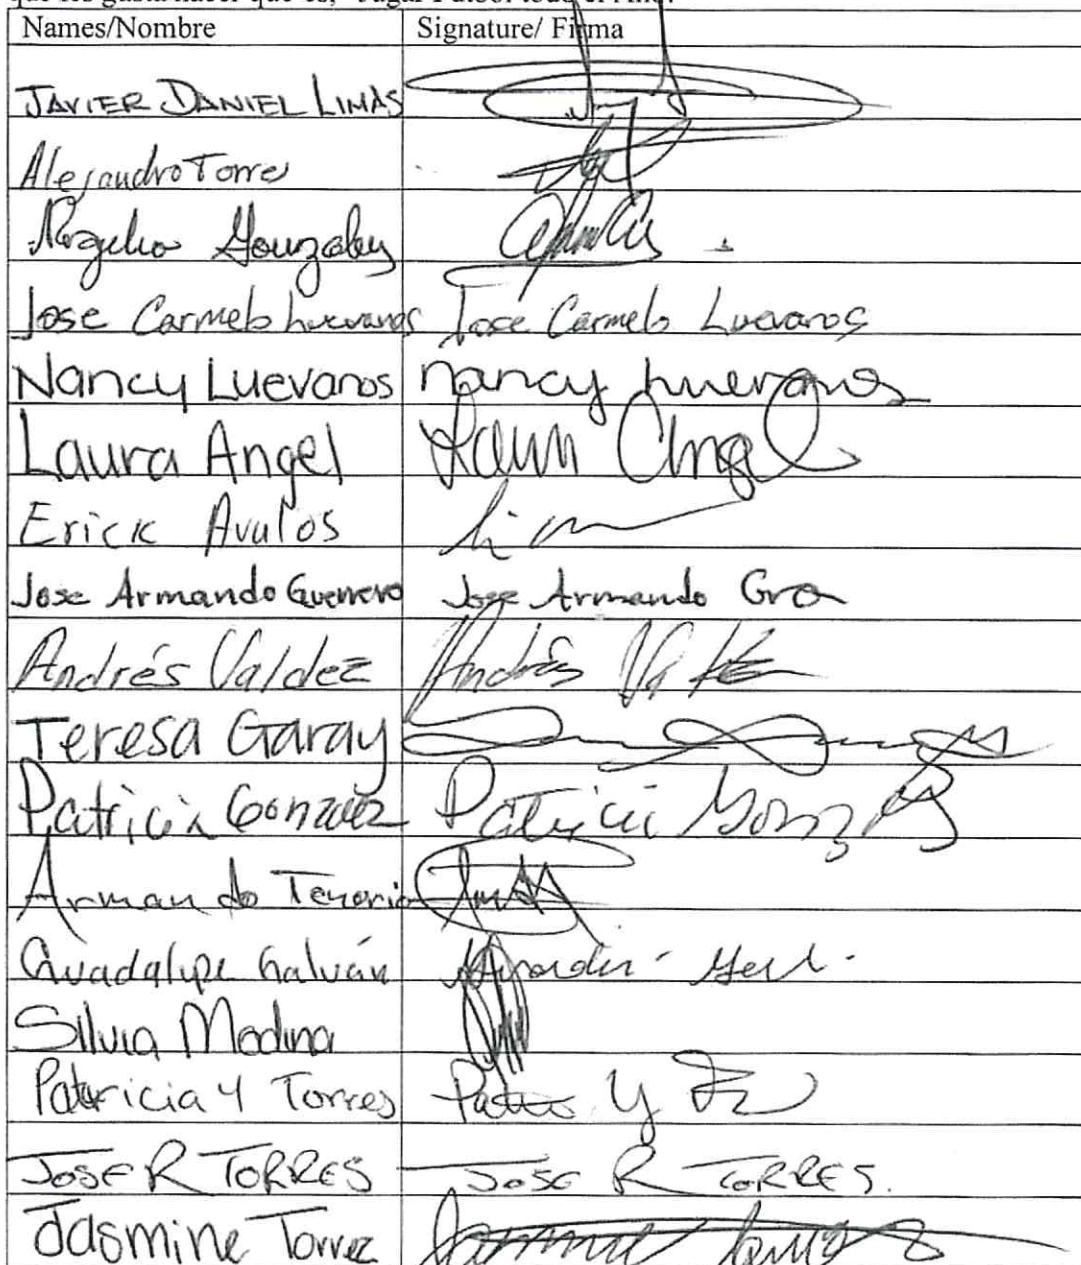 que les gusta hacer que es, "Jugar Futbol todo el Año.
Names/Nombre Signature/ Firma
JAVIER DANIEL LIMAS
Alejandro Torres
Rogelio Gonzalez
Jose Carmelo Luevanos Jose Carmelo Luevanos
Nancy Luevanos Nancy Luevanos
Laura Angel Laura Angel
Erick Avalos
Jose Armando Guerrero Jose Armando Gro
Andrés Valdez Andrés
Teresa Garay
Patricia Gonzalez Patricia Gonzalez
Armando Tenorio
Guadalupe Galván
Silvia Medina
Patricia Y Torres Y
JOSE R TORRES JOSE R TORRES.
Jasmine Torrez